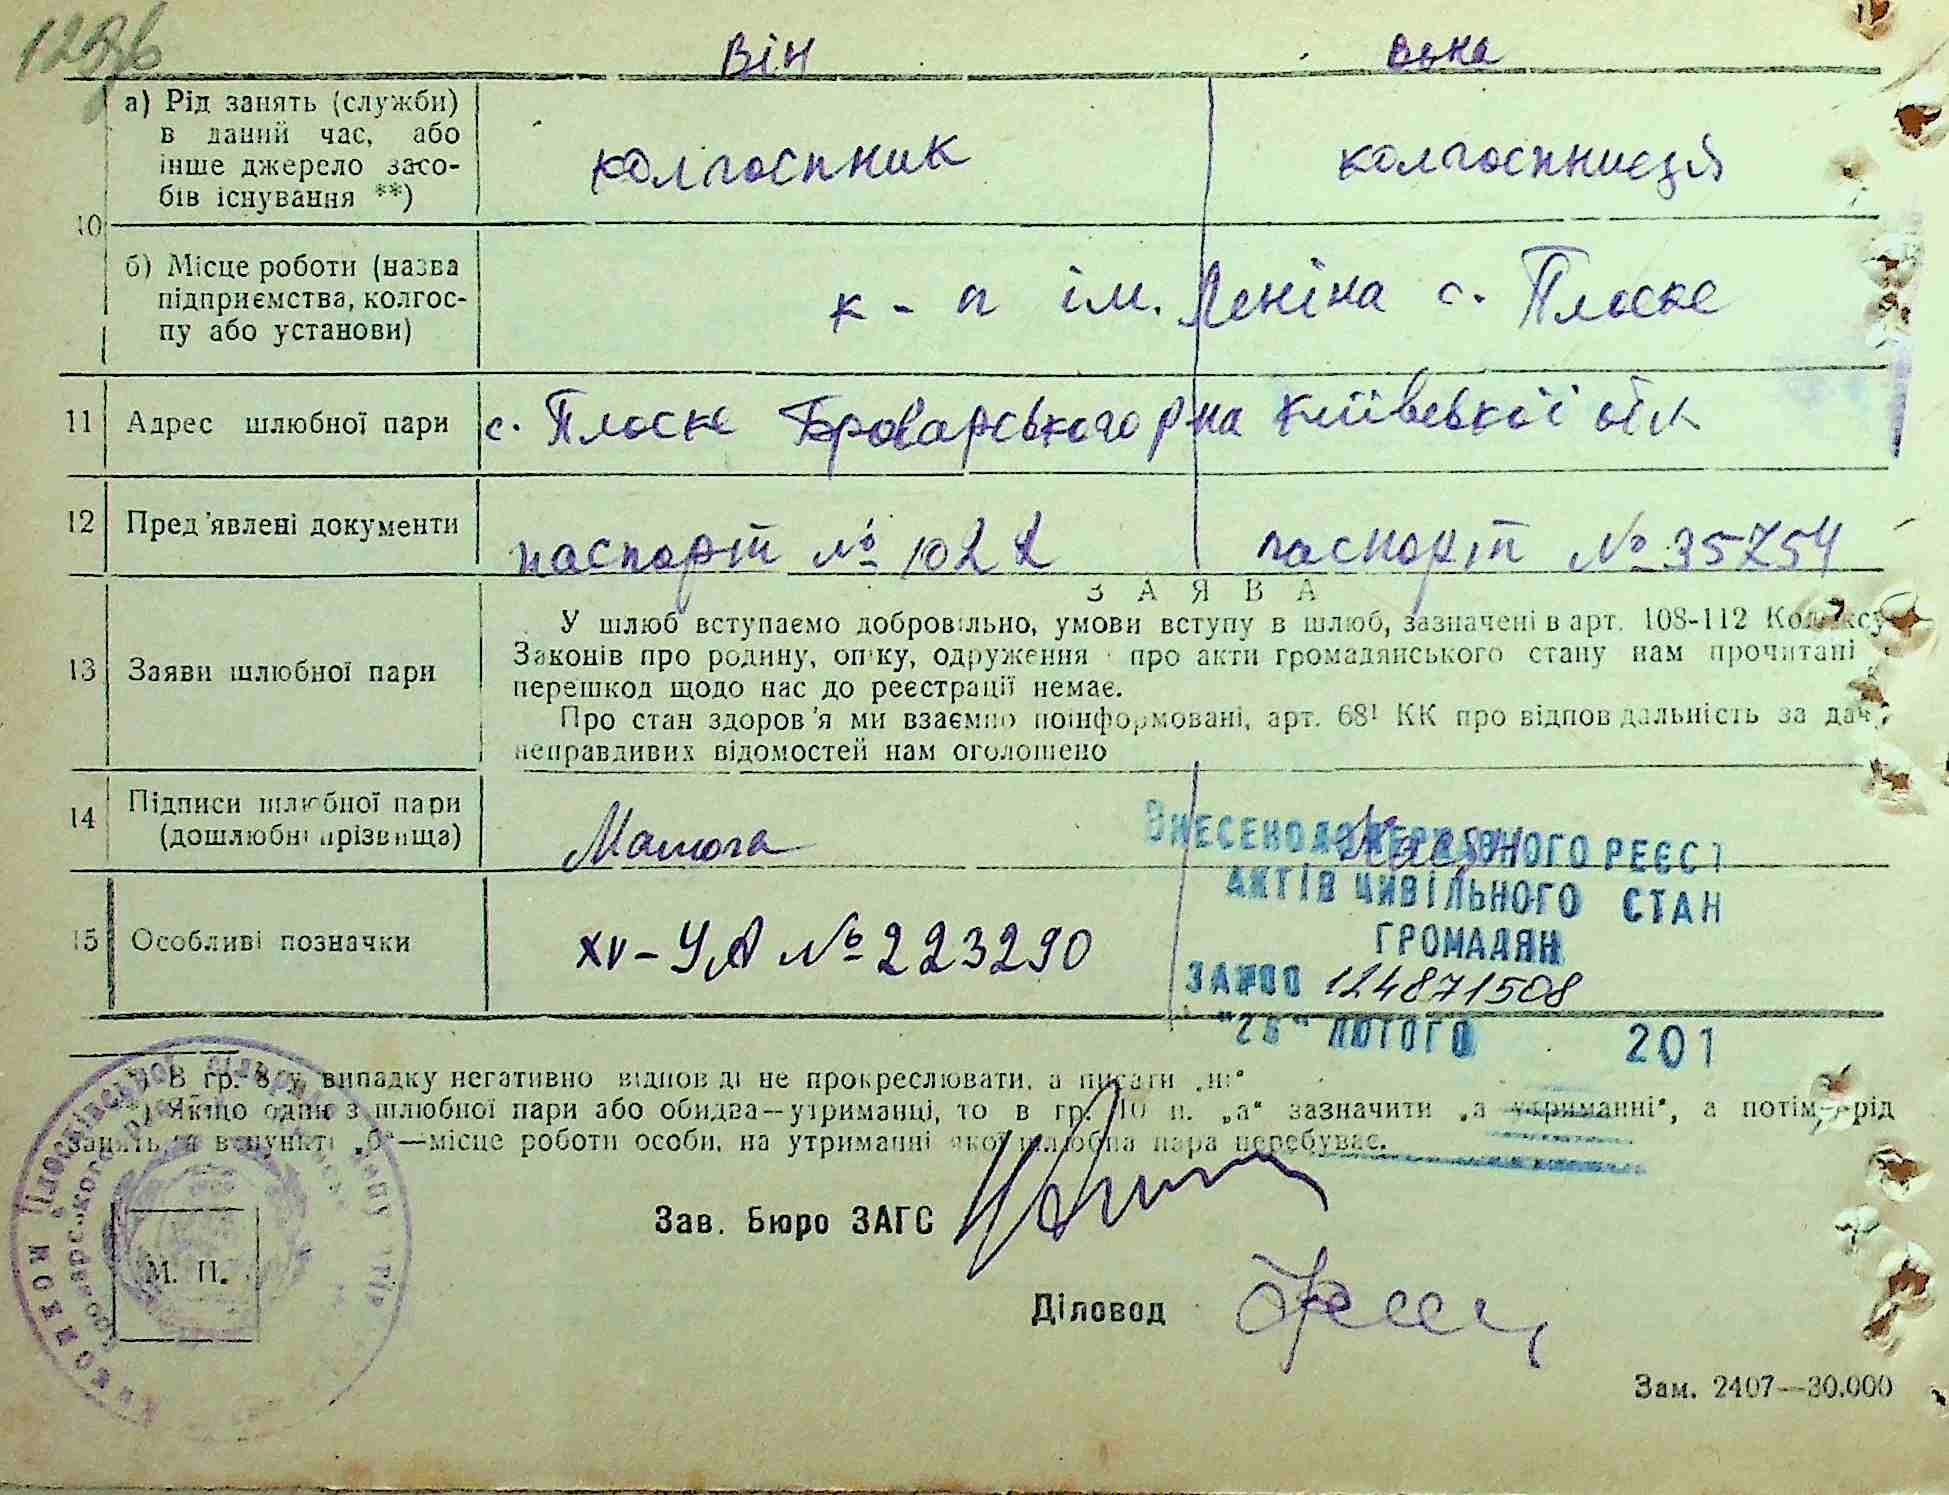 Він вона
а) Рід занять (служби)
в даний час, або
інше джерело засо-
бів існування **)
колгоспник колгоспниця
10
б) Місце роботи (назва
підприємства, колгос-
пу або установи)
к-п ім. Леніна с. Плоске
11 Адрес шлюбної пари с. Плоске Броварського р на Київської обл
12 Пред'явлені документи паспорт № 1022 паспорт № 35754
ЗАЯВА
13 Заяви шлюбної пари
У шлюб вступаємо добровільно, умови вступу в шлюб, зазначені в арт. 108-112 Кодексу
Законів про родину, опіку, одруження про акти громадянського стану нам прочитані
перешкод щодо нас до реєстрації немає.
Про стан здоров'я ми взаємно поінформовані, арт. 68¹ КК про відповідальність за дач
неправдивих відомостей нам оголошено
14 Підписи шлюбної пари
(дошлюбні прізвища)
Матюга
ВНЕСЕНО ДО ДЕРЖАВНОГО РЕЄСТ
АКТІВ ЦИВІЛЬНОГО СТАН
ГРОМАДЯН
15 Особливі позначки XV-УА № 223290
ЗА №00 124871508
"26" ЛЮТОГО 201
*) В гр. 8 у випадку негативно відповіді не прокреслювати, а писати „ні“
**) Якщо один з шлюбної пари або обидва—утриманці, то в гр. 10 п. „а“ зазначити „а утриманні“, а потім рід
занять, а в пункті „б“—місце роботи особи, на утриманні якої шлюбна пара перебуває.
Зав. Бюро ЗАГС
М. П.
Діловод
Зам. 2407—30.000